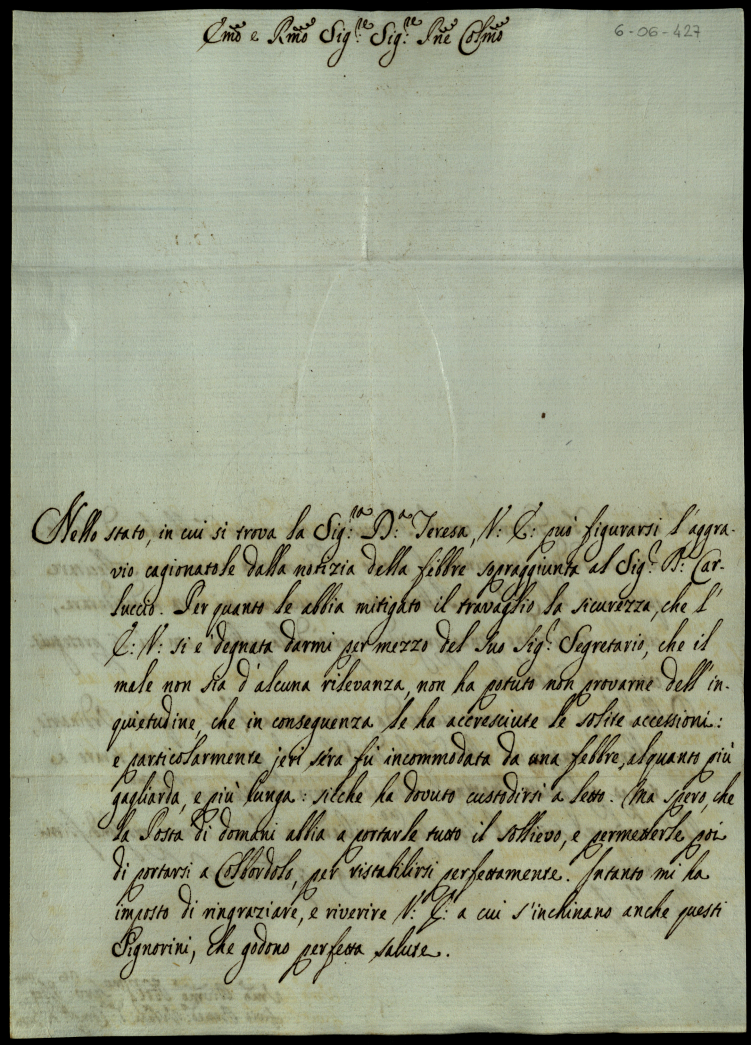 Emo e Rmo Sig.re Sig.re Pne Colmo
6-06-427
Nello stato, in cui si trova la Sig.ra D.a Teresa, V: E: può figurarsi l'aggra-
vio cagionatole dalla notizia della febbre sopraggiunta al Sig.r D: Car-
luccio. Per quanto le abbia mitigato il travaglio la sicurezza, che l'
E: V: si è degnata darmi per mezzo del suo Sig.r Segretario, che il
male non sia d'alcuna rilevanza, non ha potuto non provarne dell'in-
quietudine, che in conseguenza le ha accresciute le solite accessioni:
e particolarmente jeri sera fù incommodata da una febbre alquanto più
gagliarda, e più lunga: silche ha dovuto custodirsi a letto. Ma spero, che
la Posta di domani abbia a portarle tutto il sollievo, e permetterle poi
di portarsi a Colbordolo, per ristabilirsi perfettamente. Intanto mi ha
imposto di ringraziare, e riverire V: E: a cui s'inchinano anche questi
Signorini, che godono perfetta salute.